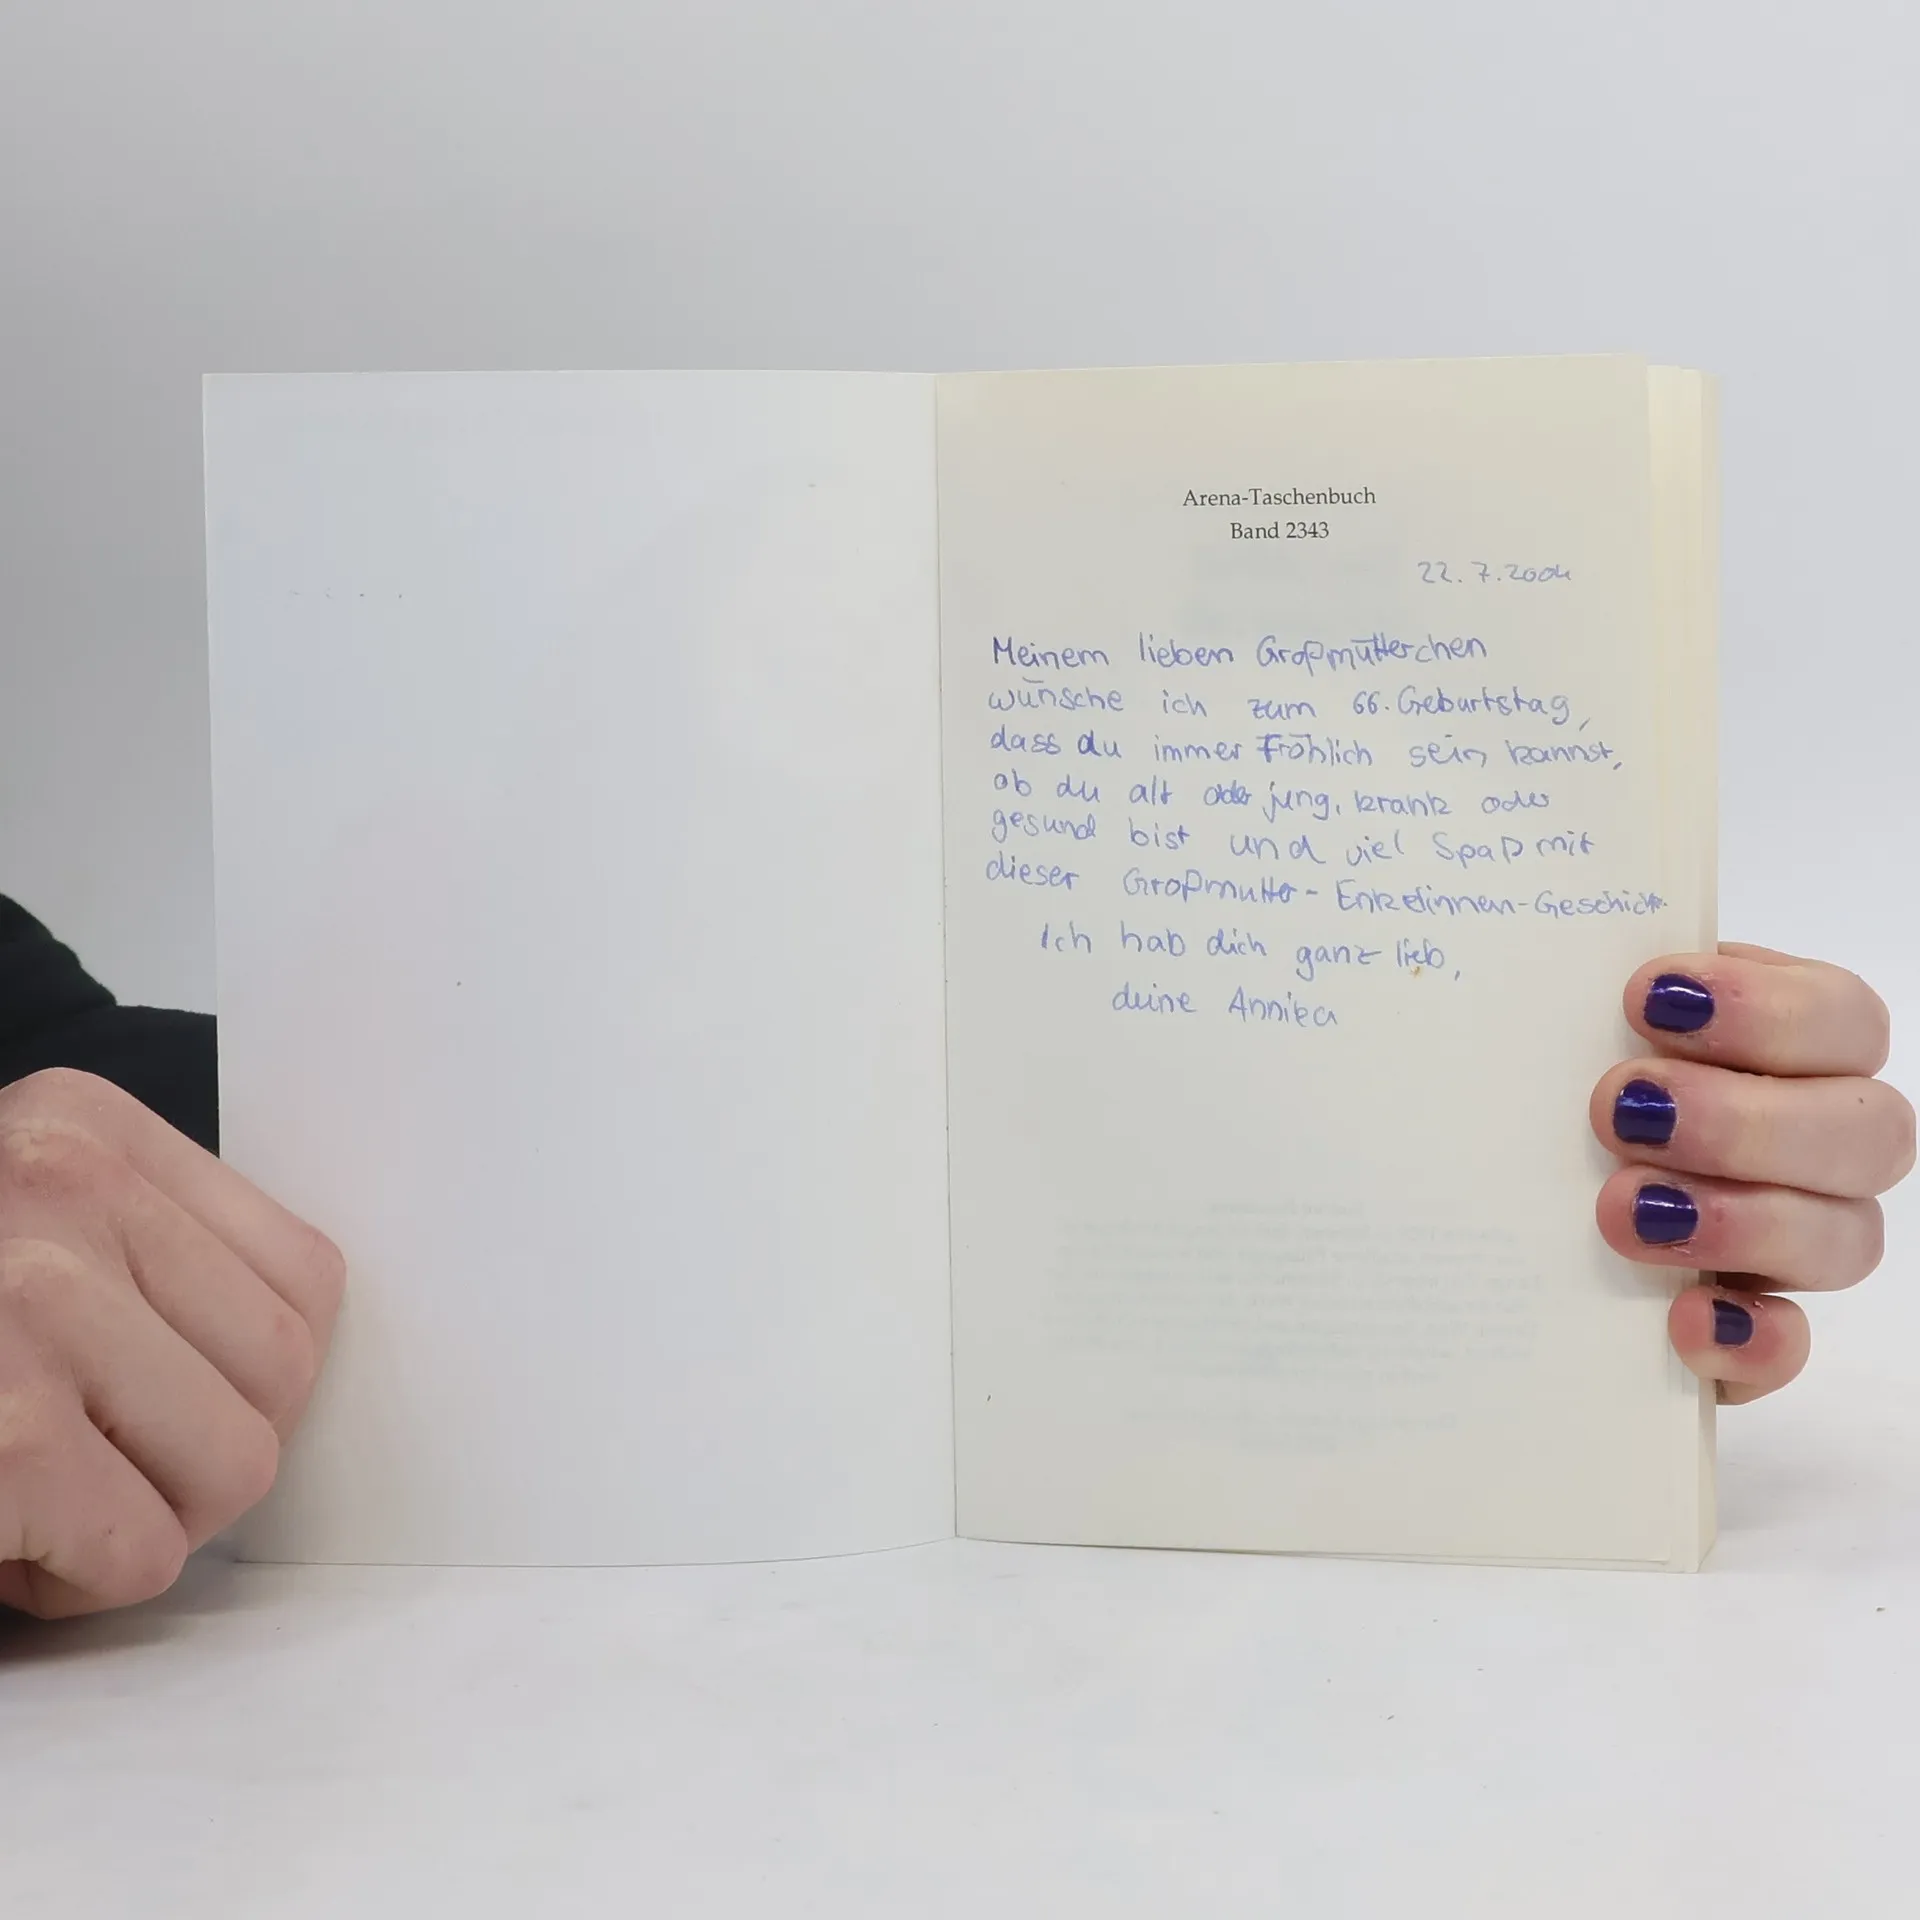 Arena-Taschenbuch
Band 2343
22.7.2004
Meinem lieben Großmütterchen
wünsche ich zum 66. Geburtstag,
dass du immer fröhlich sein kannst,
ob du alt oder jung, krank oder
gesund bist und viel Spaß mit
dieser Großmutter-Enkelinnen-Geschichte.
Ich hab dich ganz lieb,
deine Annika